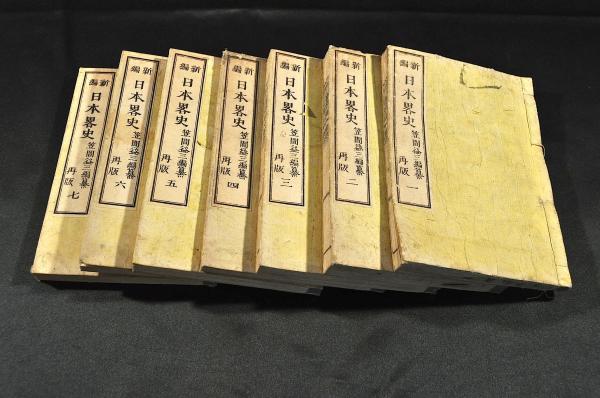 新編
日本畧史 笠間益三編纂 再版 一
新編
日本畧史 笠間益三編纂 再版 二
新編
日本畧史 笠間益三編纂 再版 三
新編
日本畧史 笠間益三編纂 再版 四
新編
日本畧史 笠間益三編纂 再版 五
新編
日本畧史 笠間益三編纂 再版 六
新編
日本畧史 笠間益三編纂 再版 七